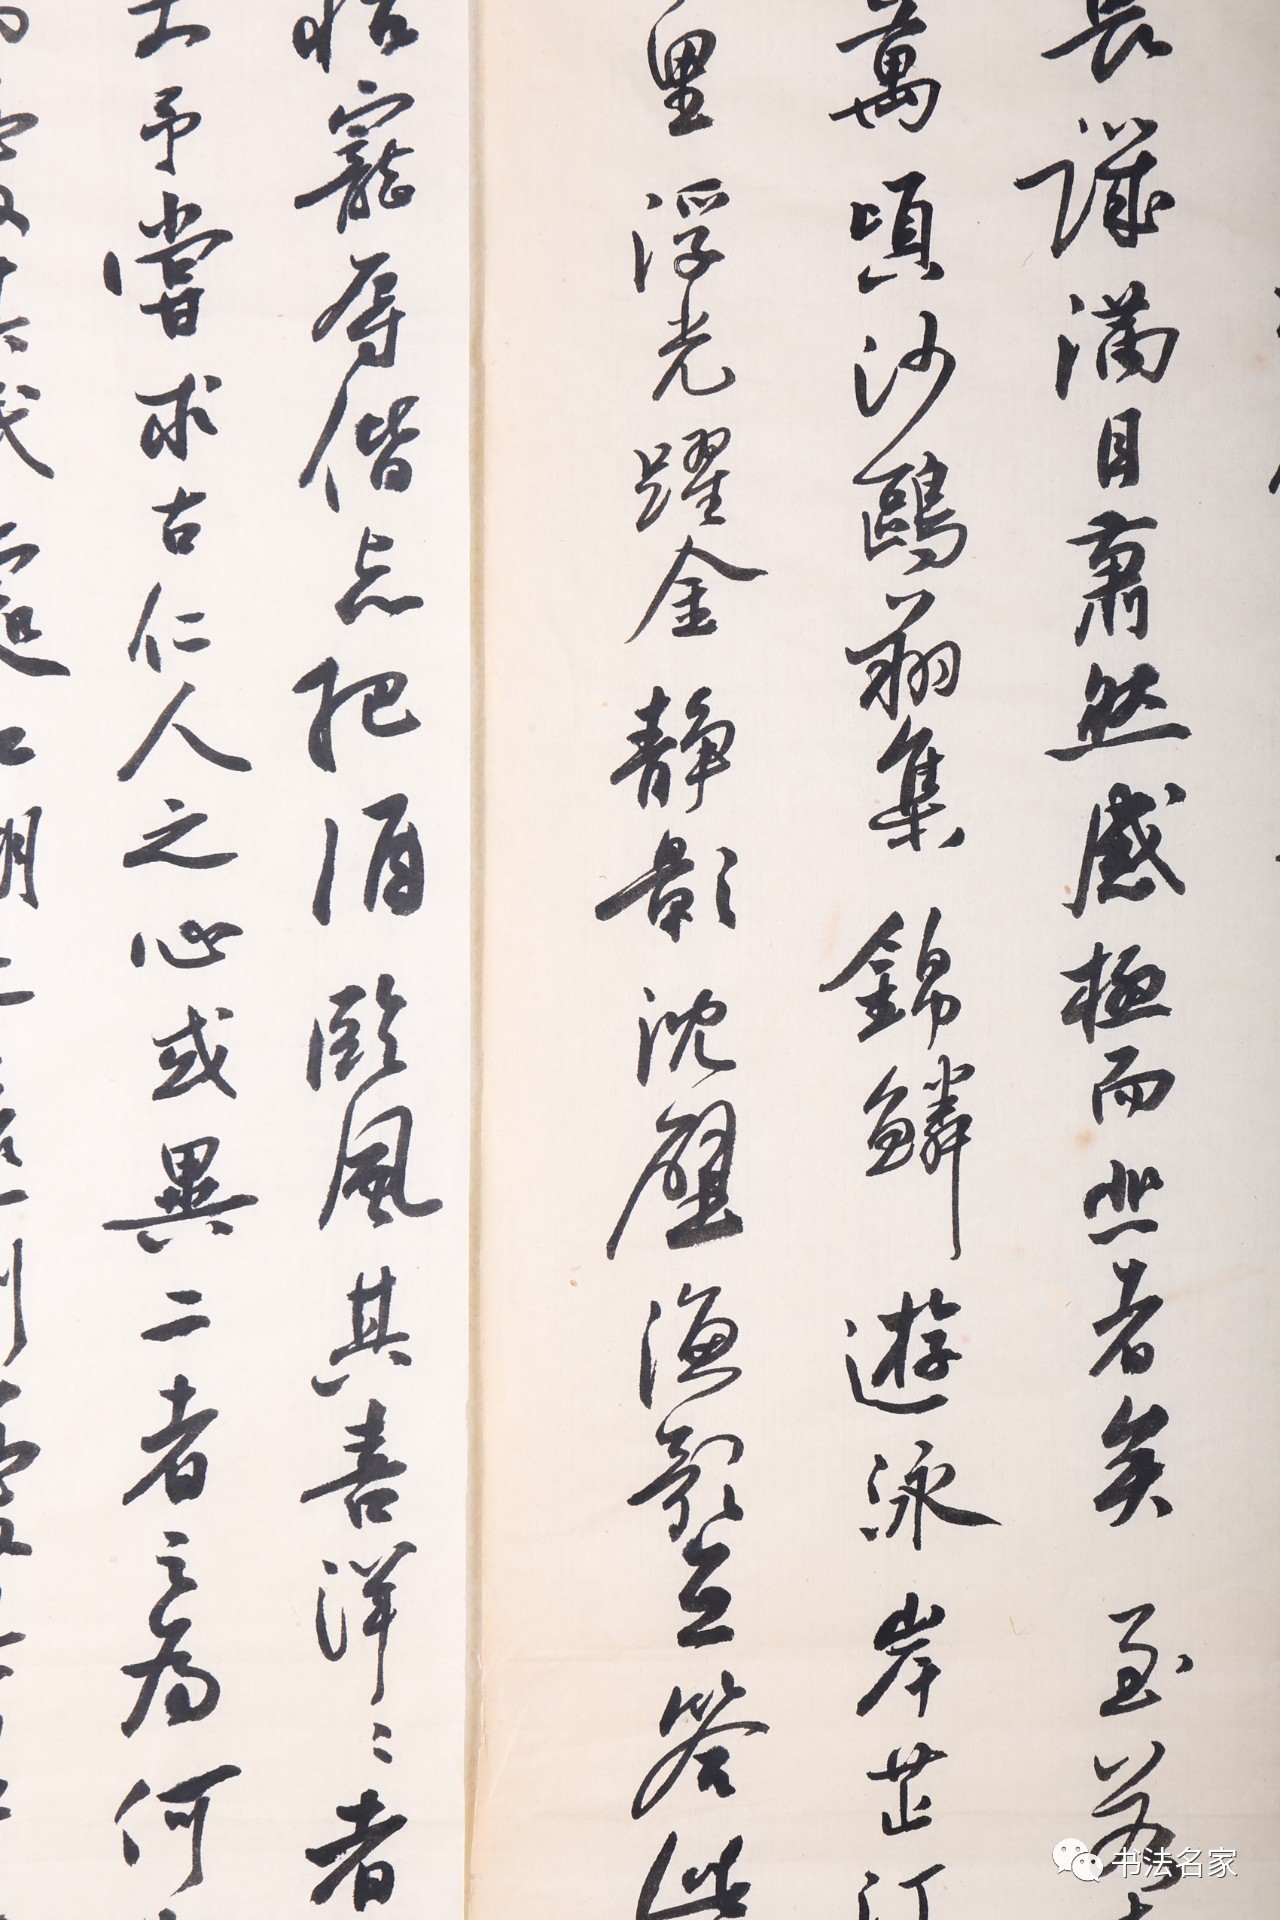 畏譏滿目蕭然感極而悲者矣至若
萬頃沙鷗翔集錦鱗遊泳岸芷汀
里浮光躍金靜影沈璧漁歌互答此
怡寵辱偕忘把酒臨風其喜洋〻者
予嘗求古仁人之心或異二者之為何
處江湖之
书法名家